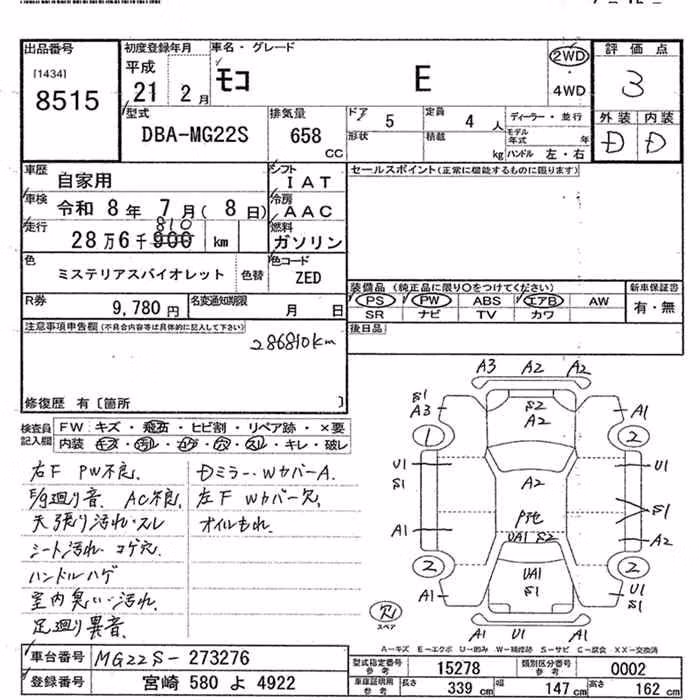 出品番号 初度登録年月 車名・グレード 2WD ・ 4WD 評価点
[1434]
8515
平成 21 2月 モコ E 3
型式 排気量 ドア 5 定員 4人 ディーラー・並行 外装 内装
DBA-MG22S 658 CC 形状 積載 kg モデル年式 年 ハンドル 左・右 D D
車歴 自家用 シフト IAT セールスポイント(正常に機能するものに限ります)
車検 令和 8年 7月(8日) 冷房 AAC
810
走行 28万6千900 km 燃料 ガソリン
色 ミステリアスバイオレット 色替 色コード ZED
装備品(純正品に限り○をつけてください) 新車保証書
PS PW ABS エアB AW 有・無
SR ナビ TV カワ
R券 9,780円 名変通知期限 月 日
後日品
注意事項申告欄(不具合内容等は具体的に記入して下さい)
286810km
修復歴 有〔箇所 〕
検査員記入欄 FW キズ・飛石・ヒビ割・リペア跡・×要
内装 キズ・汚レ・コゲ・穴・スレ・キレ・破レ
右F PW不良. Dミラー・WカバーA.
F/g廻り音. AC不良. 左F Wカバー欠.
天張り汚れ・スレ オイルもれ.
シート汚れ コゲ穴.
ハンドルハゲ
室内臭い・汚れ.
足廻り異音.
A3 A2 A2
S1 A3 S2 A2 A1
1 2
U1 S1 A2 U1
P他 S1
A1 UA1 S2 A2
2 2
A1 UA1 S1 U1 S1
欠 スペア A1 U1 A1
A-キズ E-エクボ U-凹み W-補修跡 S-サビ C-腐食 XX-交換済
車台番号 MG22S-273276
型式指定番号 参考 15278 類別区分番号 参考 0002
登録番号 宮崎 580 よ 4922
車庫証明用 参考 長さ 339cm 幅 147cm 高さ 162cm